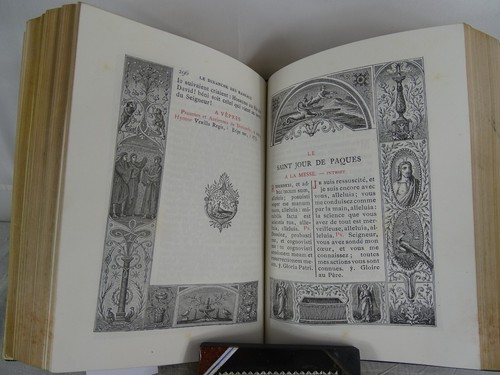 296 LE DIMANCHE DES RAMEAUX
le suivaient criaient : Hosanna au
David! béni soit celui qui vient
du Seigneur!
A VÊPRES
Hymne Vexilla Regis,
LE
SAINT JOUR DE PAQUES
A LA MESSE. — INTROIT
et ad-
huc tecum sum,
alleluia;
me manum
alleluia :
facta est
tua, alle-
luia, alleluia. Ps.
Domine, probasti
me, et cognovisti
me : tu cognovisti
sessionem meam et
resurrectionem me-
am. ℣. Gloria Patri.
Je suis ressuscité, et
je suis encore avec
vous, alleluia; vous
me conduisez comme
par la main, alleluia :
la science que vous
avez de tout est mer-
veilleuse, alleluia, al-
léluia. Ps. Seigneur,
vous avez sondé mon
cœur, et vous me
connaissez; toutes
mes actions vous sont
connues. ℣. Gloire
au Père.